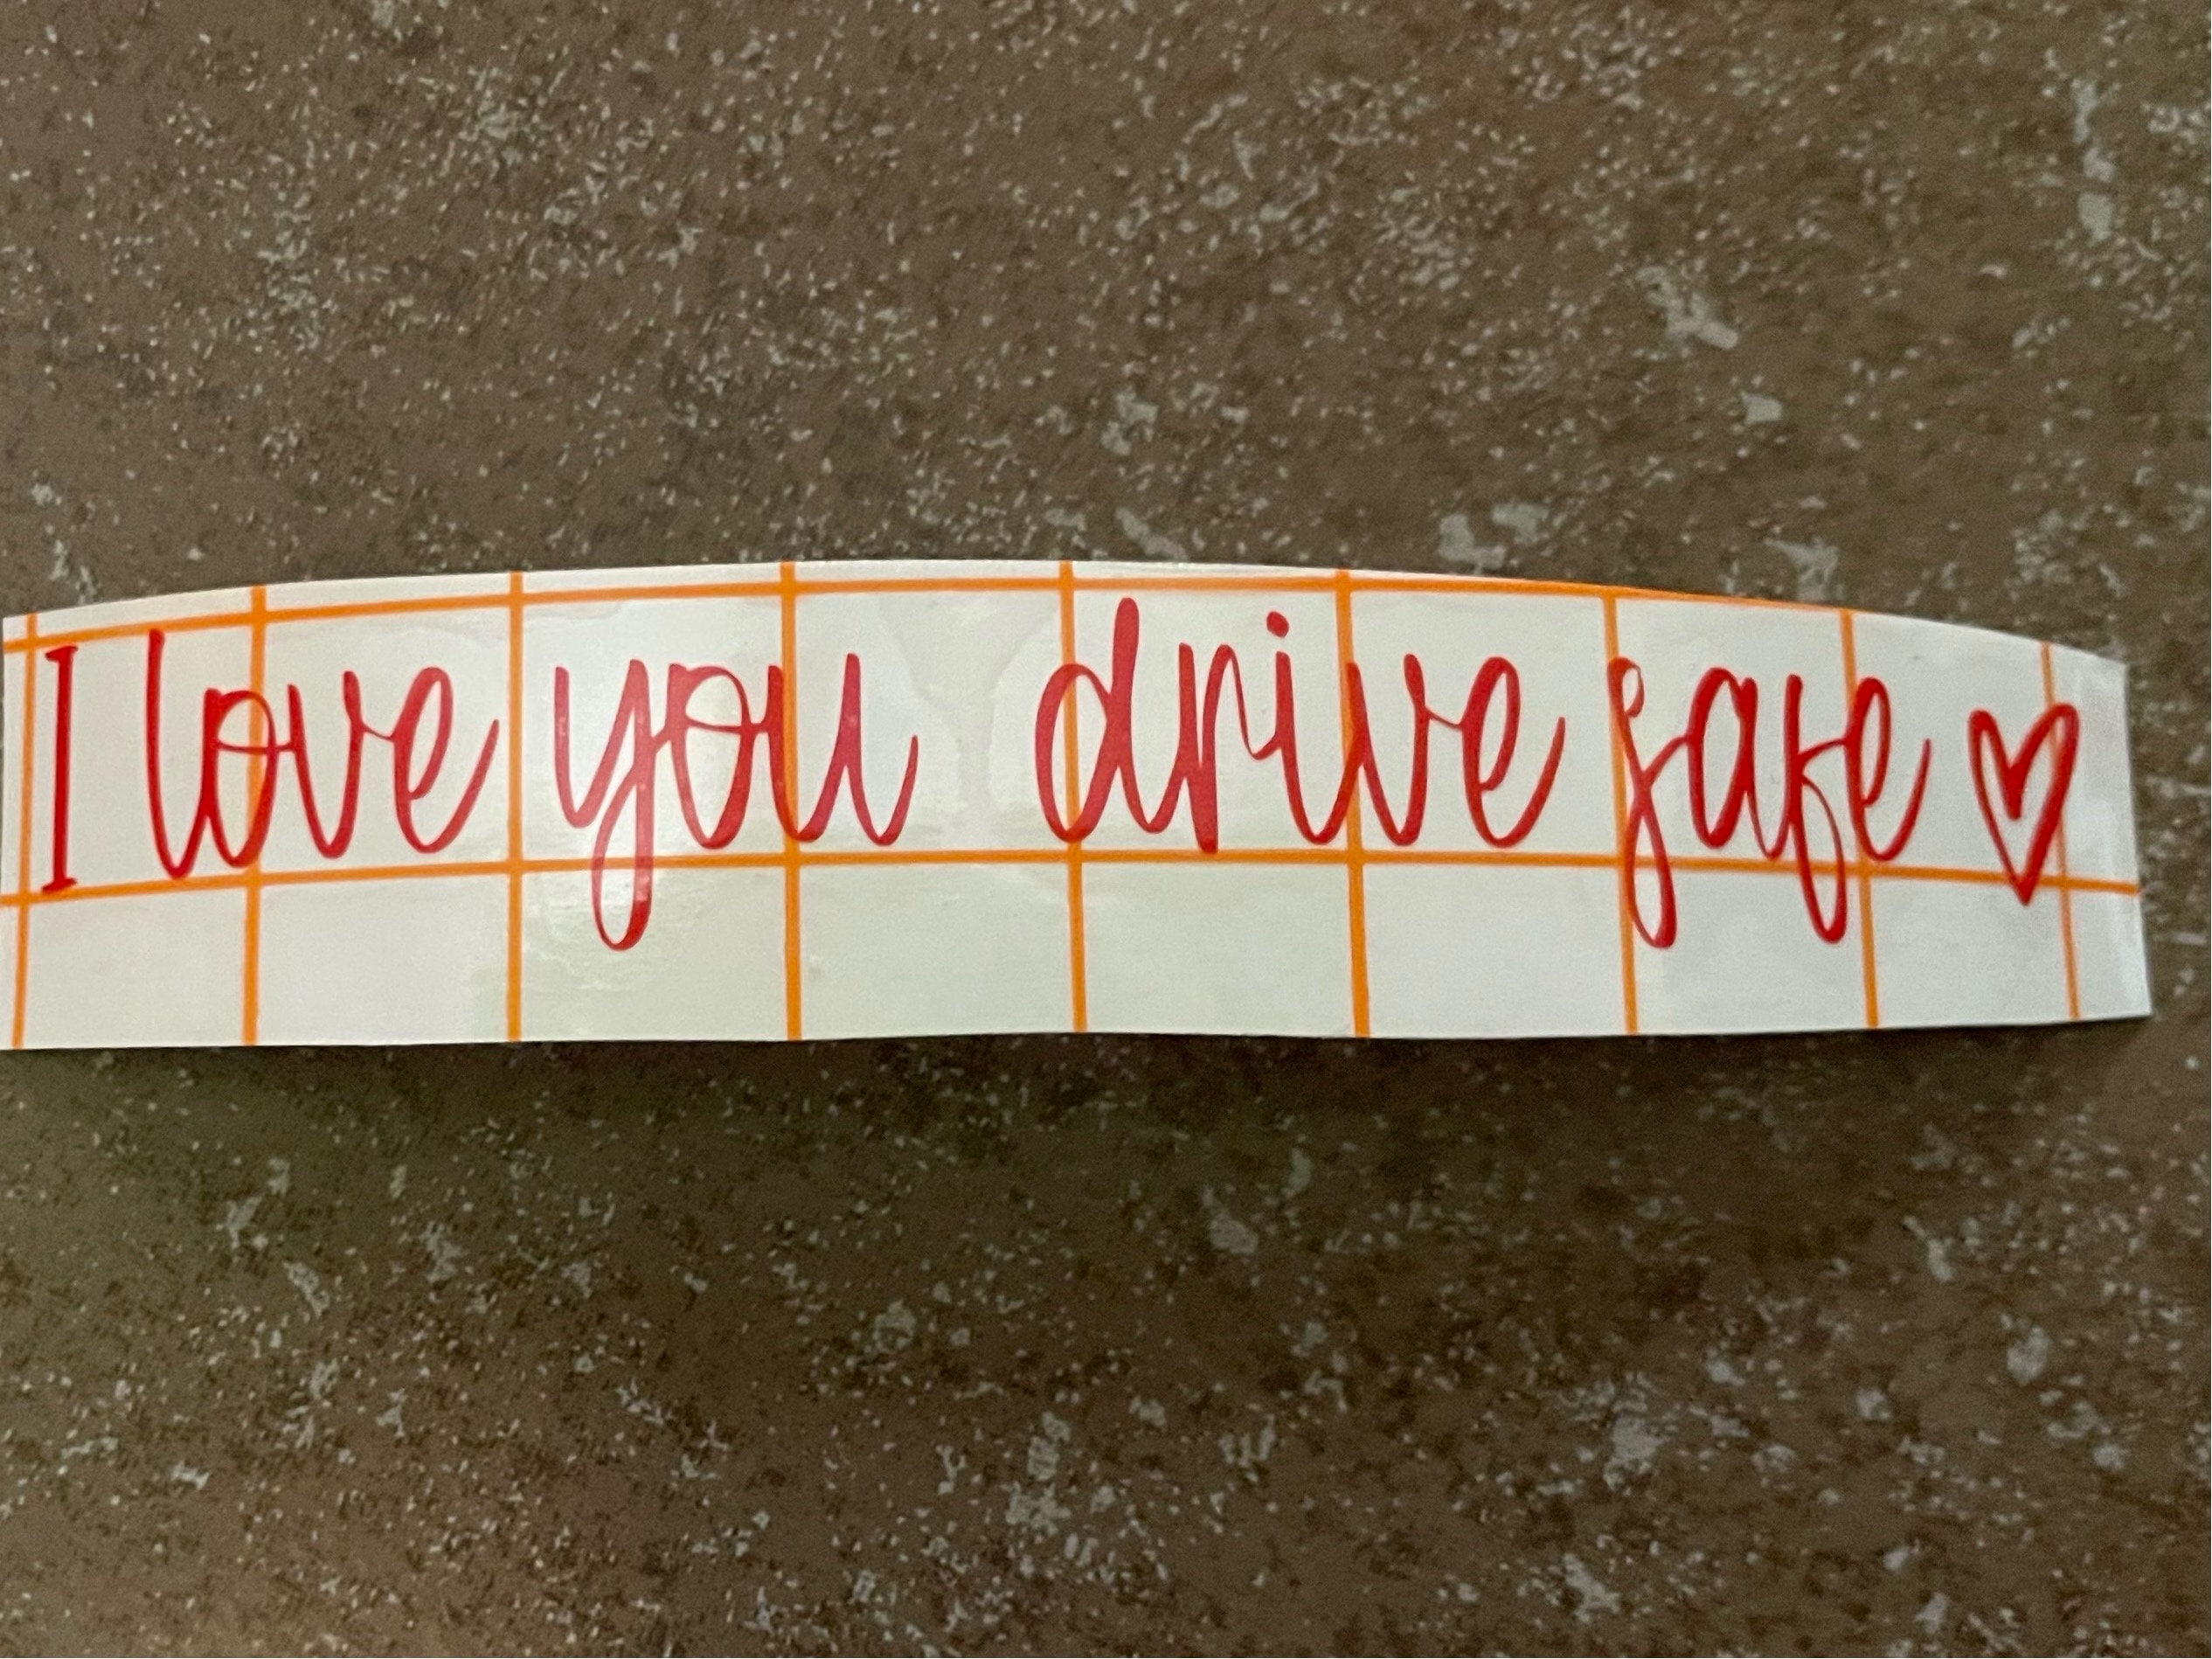 I love you drive safe ♡